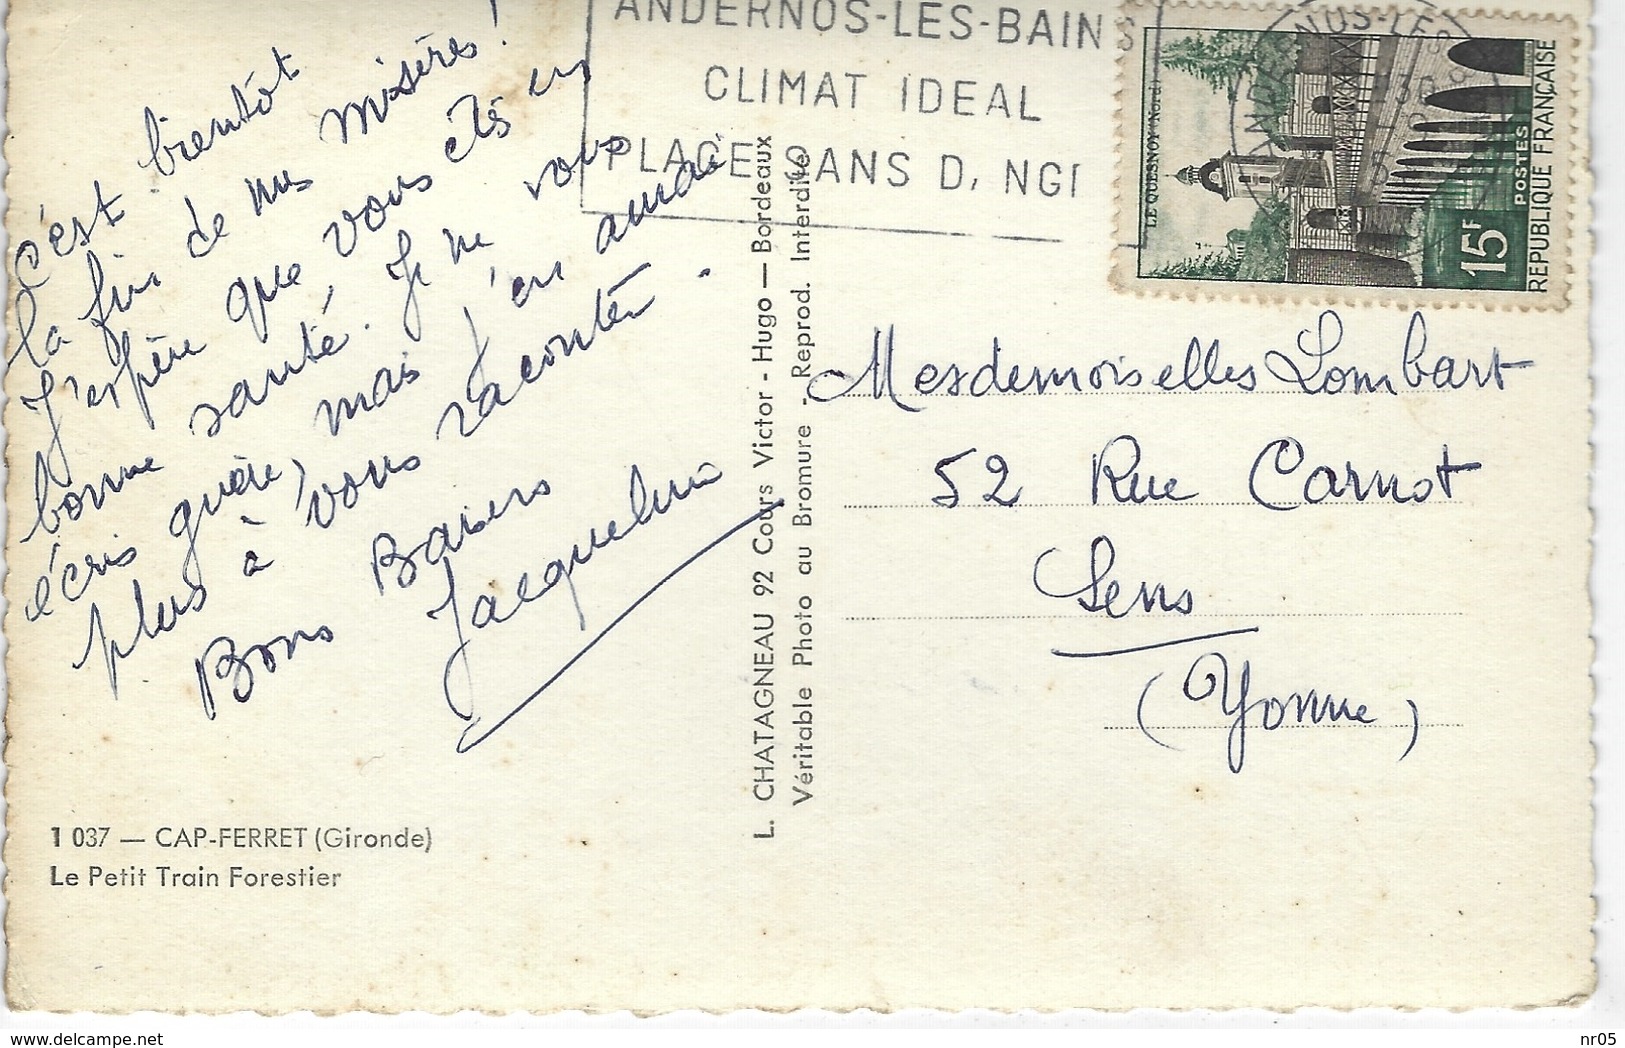 C'est bientôt
la fin de mes misères !
J'espère que vous êtes en
bonne santé. Je ne vous
écris guère, mais j'en aurai
plus à vous raconter.
Bons Baisers
Jacqueline
1 037 — CAP-FERRET (Gironde)
Le Petit Train Forestier
L. CHATAGNEAU 92 Cours Victor - Hugo — Bordeaux
Véritable Photo au Bromure - Reprod. Interdite
ANDERNOS-LES-BAINS
CLIMAT IDEAL
PLAGE SANS D, NGI
LE QUESNOY (Nord)
15F
POSTES
REPUBLIQUE FRANÇAISE
Mesdemoiselles Lombart
52 Rue Carnot
Sens
(Yonne)
delcampe.net
nr05